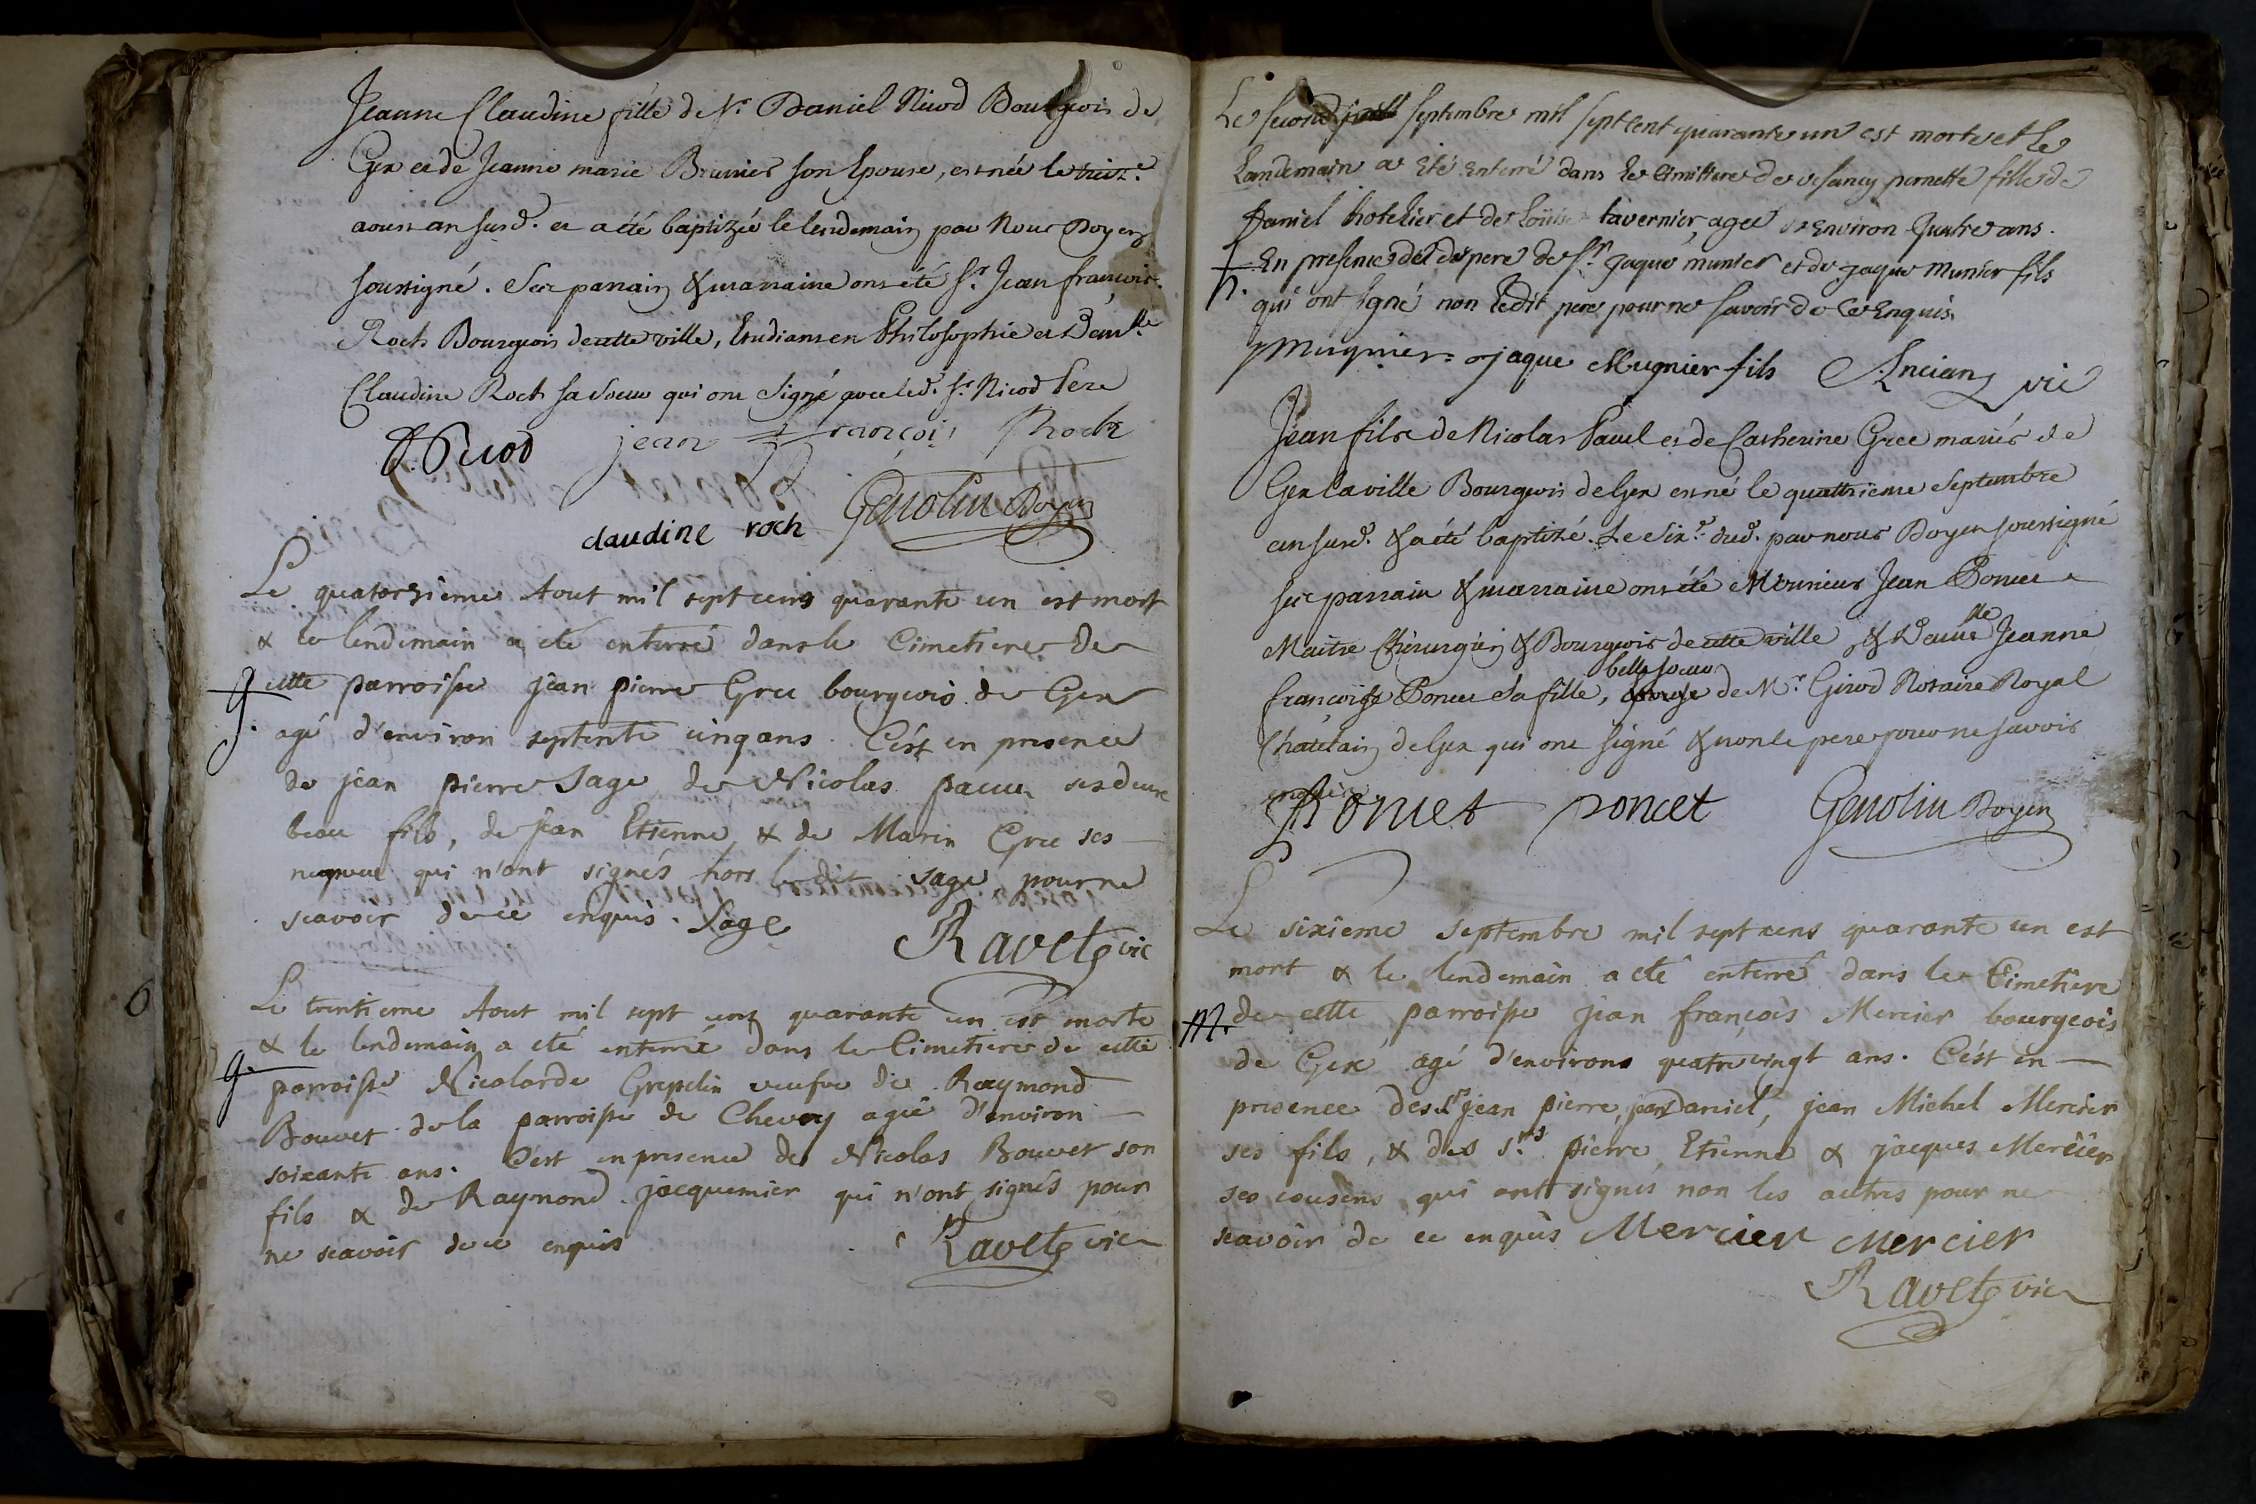 Jeanne Claudine fille de Sr. Daniel Nicod Bourgeois de
Gex et de Jeanne marie Brunier son Epouse, est née le treize
aoust an susd. et a été baptizée le lendemain par Nous Doyen
soussigné. Ses parrain & marraine ont été Sr. Jean françois
Roch Bourgeois de cette ville, Etudiant en Philosophie et Demlle
Claudine Roch sa soeur qui ont signé avec led. Sr. Nicod Pere
D. Nicod jean François Roch
claudine roch Genolin Doyen
Le quatorzième Aout mil sept cents quarante un est mort
& le lendemain a été enterré dans le Cimetiere de
g. cette parroisse jean pierre Gree bourgeois de Gex
agé d'environ septente cinq ans. C'est en presence
de jean pierre Sage de Nicolas ses deux
beau fils, de jean Etienne & de Marin Gree ses
neqveux qui n'ont signés hors ledit Sage pour ne
scavoir de ce enquis. Sage
Ravet vic
Le trentieme Aout mil sept cens quarante un est morte
& le lendemain a été enterré dans le Cimetiere de cette
g. parroisse Nicolarde Grepelin veufve de Raymond
Bouvet de la parroisse de Chevry agée d'environ
soixante ans. C'est en presence de Nicolas Bouvet son
fils & de Raymond jacquemier qui n'ont signés pour
ne scavoir de ce enquis
Ravet vic
Le second septembre mil sept cent quarante un est morte et le
landemain a été enterré dans le cimittiere de vesancy pernette fille de
Daniel hotelier et de Loüise tavernier, agee d'environ quatre ans.
h. En presence dudt pere de Sr. jaque munier et de jaque Munier fils
qui ont signé non ledit pere pour ne savoir de ce Enquis.
Mugnier jaque Mugnier fils Ancian vic
Jean fils de Nicolas Paul et de Catherine Gree mariés de
Gex la ville Bourgeois de Gex est né le quattrieme Septembre
an susd. & a été baptizé. Le six.e dud. par nous Doyen soussigné
ses parrain & marraine ont été Monsieur Jean Poncet
Maitre Chirurgien & Bourgeois de cette ville, & Demlle Jeanne
françoise Poncet sa fille, belle soeur de Mr. Girod Notaire Royal
Chatelain de Gex qui ont signé & non le pere pour ne savoir
enquis
Poncet poncet Genolin Doyen
Le sixieme Septembre mil sept cens quarante un est
mort & le lendemain a été enterré dans le Cimetiere
m. de cette parroisse jean françois Mercier bourgeois
de Gex agé d'environs quatre vingt ans. C'est en
presence des Sr jean pierre, jean Daniel, jean Michel Mercier
ses fils, & des Srs. pierre, Etienne & jacques Mercier
ses cousins qui ont signés non les autres pour ne
scavoir de ce enquis Mercier Mercier
Ravet vic